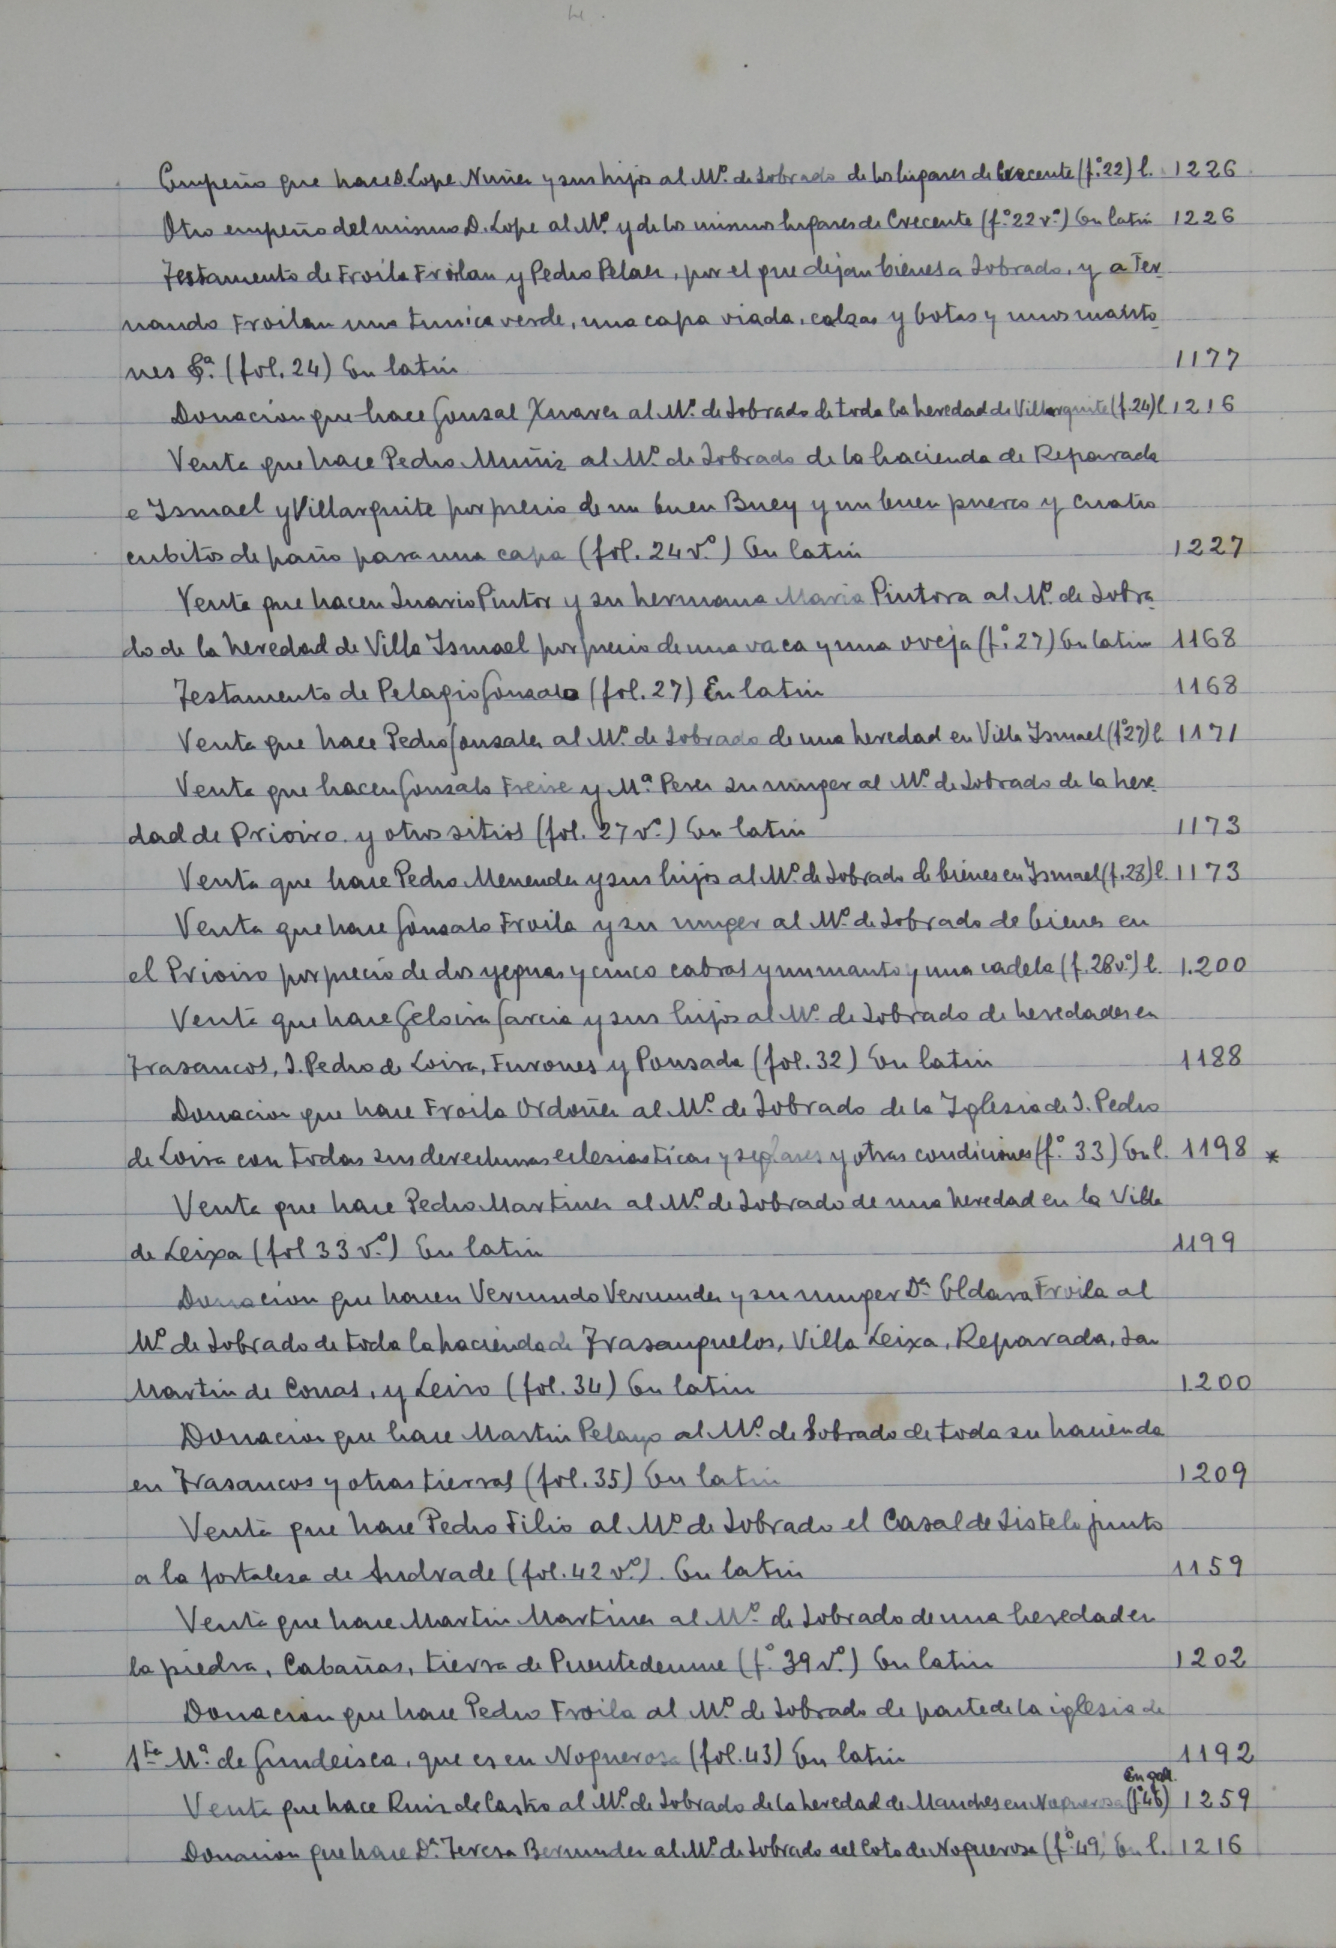 Empeño que hace D. Lope Nuñez y sus hijos al Mº. de Sobrado de los lugares de Crecente (fº. 22) l. 1226
Otro empeño del mismo D. Lope al Mº. y de los mismos lugares de Crecente (fº. 22 vº.) En latin 1226
Testamento de Froila Froilan y Pedro Pelaez, por el que dejan bienes a Sobrado, y a Fer-
nando Froilan una tunica verde, una capa viada, calzas y botas y unos manto-
nes &ª. (fol. 24) En latin 1177
Donación que hace Gonzal Xuarez al Mº. de Sobrado de toda la heredad de Villarquite (f. 24) l 1216
Venta que hace Pedro Muñiz al Mº. de Sobrado de la hacienda de Reparada
e Ismael y Villarquite por precio de un buen Buey y un buen puerco y cuatro
cubitos de paño para una capa (fol. 24 vº.) En latin 1227
Venta que hacen Juario Pintor y su hermana Maria Pintora al Mº. de Sobra-
do de la heredad de Villa Ismael por precio de una vaca y una oveja (fº. 27) En latin 1168
Testamento de Pelagio Gonzalo (fol. 27) En latin 1168
Venta que hace Pedro Gonzalez al Mº. de Sobrado de una heredad en Villa Ismael (fº 27) l. 1171
Venta que hacen Gonzalo Freire y Mª. Perez su muger al Mº. de Sobrado de la here-
dad de Prioiro y otros sitios (fol. 27 vº.) En latin 1173
Venta que hace Pedro Menendez y sus hijos al Mº. de Sobrado de bienes en Ismael (f. 28) l. 1173
Venta que hace Gonzalo Froila y su muger al Mº. de Sobrado de bienes en
el Prioiro por precio de dos yeguas y cinco cabras y un manto y una cadela (f. 28 vº.) l. 1.200
Venta que hace Geloira Garcia y sus hijos al Mº. de Sobrado de heredades en
Trasancos, S. Pedro de Loira, Furones y Pousada (fol. 32) En latin 1188
Donacion que hace Froila Ordoñez al Mº. de Sobrado de la Iglesia de S. Pedro
de Loira con todas sus derechuras eclesiasticas y seglares y otras condiciones (fº. 33) En l. 1198 *
Venta que hace Pedro Martinez al Mº. de Sobrado de una heredad en la Villa
de Leixa (fol 33 vº.) En latin 1199
Donacion que hacen Vermundo Vermundez y su muger Dª. Eldara Froila al
Mº. de Sobrado de toda la hacienda de Trasanquelos, Villa Leixa, Reparada, San
Martin de Corras, y Leiro (fol. 34) En latin 1200
Donacion que hace Martin Pelayo al Mº. de Sobrado de toda su hacienda
en Trasancos y otras tierras (fol. 35) En latin 1209
Venta que hace Pedro Filio al Mº. de Sobrado el Casal de Sistelo junto
a la fortaleza de Andrade (fol. 42 vº.). En latin 1159
Venta que hace Martin Martinez al Mº. de Sobrado de una heredad en
la piedra, Cabañas, tierra de Puentedeume (fº. 39 vº.) En latin 1202
Donacion que hace Pedro Froila al Mº. de Sobrado de parte de la iglesia de
Sta Mª. de Gundeisca, que es en Noguerosa (fol. 43) En latin 1192
Venta que hace Ruiz de Castro al Mº. de Sobrado de la heredad de Manches en Noguerosa (fº. 46) En gall. 1259
Donacion que hace Dª. Teresa Bermudez al Mº. de Sobrado del Coto de Noguerosa (fº. 49) En l. 1216